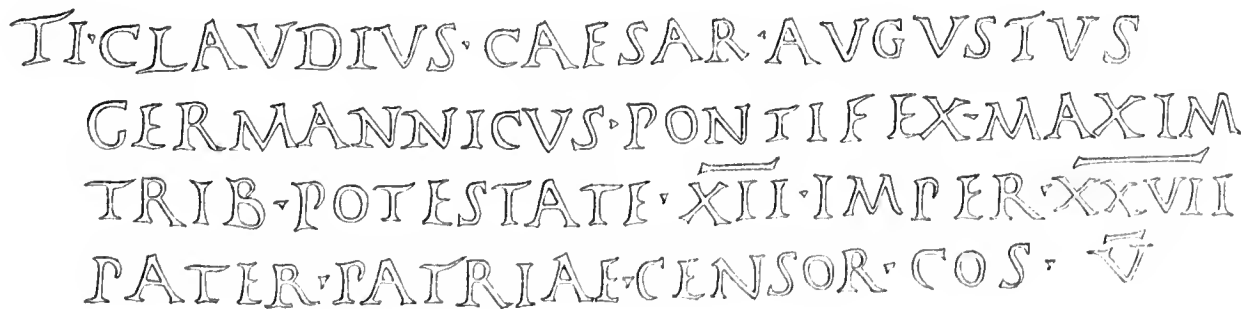 TI·CLAVDIVS·CAESAR·AVGVSTVS
GERMANNICVS·PONTIFEX·MAXIM
TRIB·POTESTATE·X̅I̅I̅·IMPER·X̅X̅V̅I̅I̅
PATER·PATRIAE·CENSOR·COS·V̅